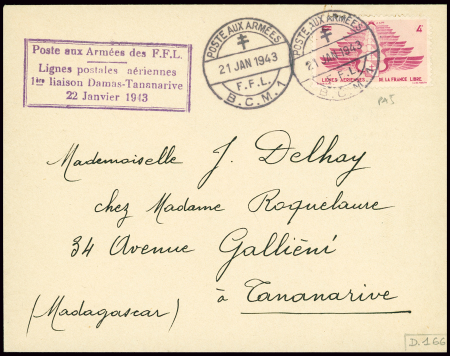 Poste aux Armées des F.F.L.
Lignes postales aériennes
1ère liaison Damas-Tananarive
22 Janvier 1943
POSTE AUX ARMÉES
21 JAN 1943
F.F.L.
B.C.M.1
POSTE AUX ARMÉES
21 JAN 1943
F.F.L.
B.C.M.1
4F
LIGNES AÉRIENNES DE LA FRANCE LIBRE
Mademoiselle J. Delhay
chez Madame Roquelaure
34 Avenue Galliéni
à Tananarive
(Madagascar)
D.166